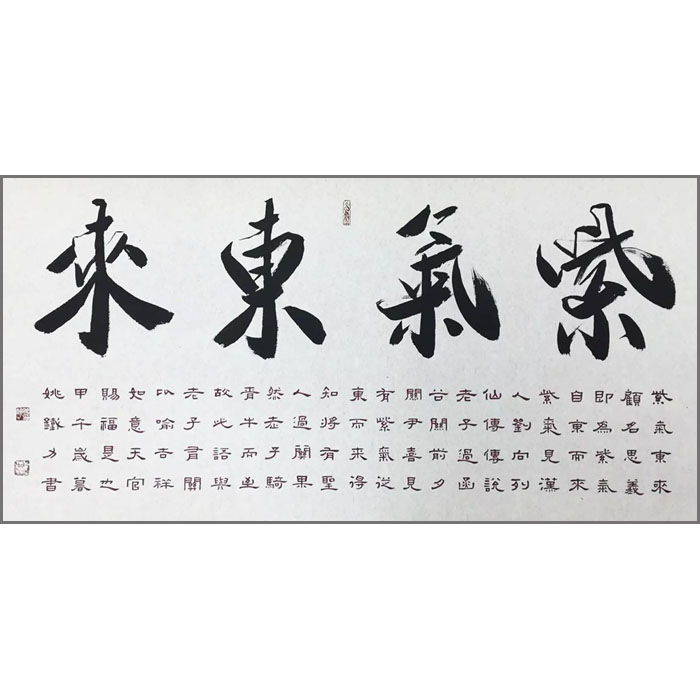 紫氣東來
紫氣東來
顧名思義
即為紫氣
自東而來
紫氣見漢
人劉向列
仙傳傳說
老子過函
谷關前夕
關尹喜見
有紫氣從
東而來得
知將有聖
人過關果
然老子騎
青牛而至
故此語與
老子有關
以喻吉祥
如意天官
賜福是也
甲午歲暮
姚鐵力書